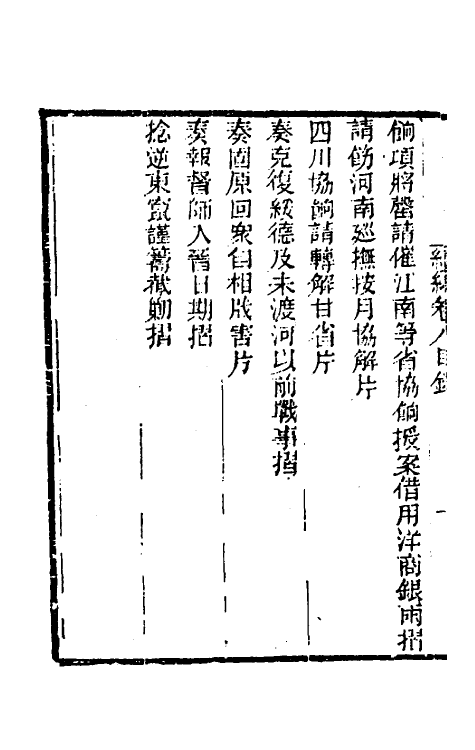 餉項將罄請催江南等省協餉援案借用洋商銀兩摺
請飭河南巡撫按月協解片
四川協餉請轉解甘省片
奏克復綏德及未渡河以前戰事摺
奏固原回衆自相戕害片
奏報督師入晉日期摺
捻逆東竄謹籌截剿摺
卷八目錄